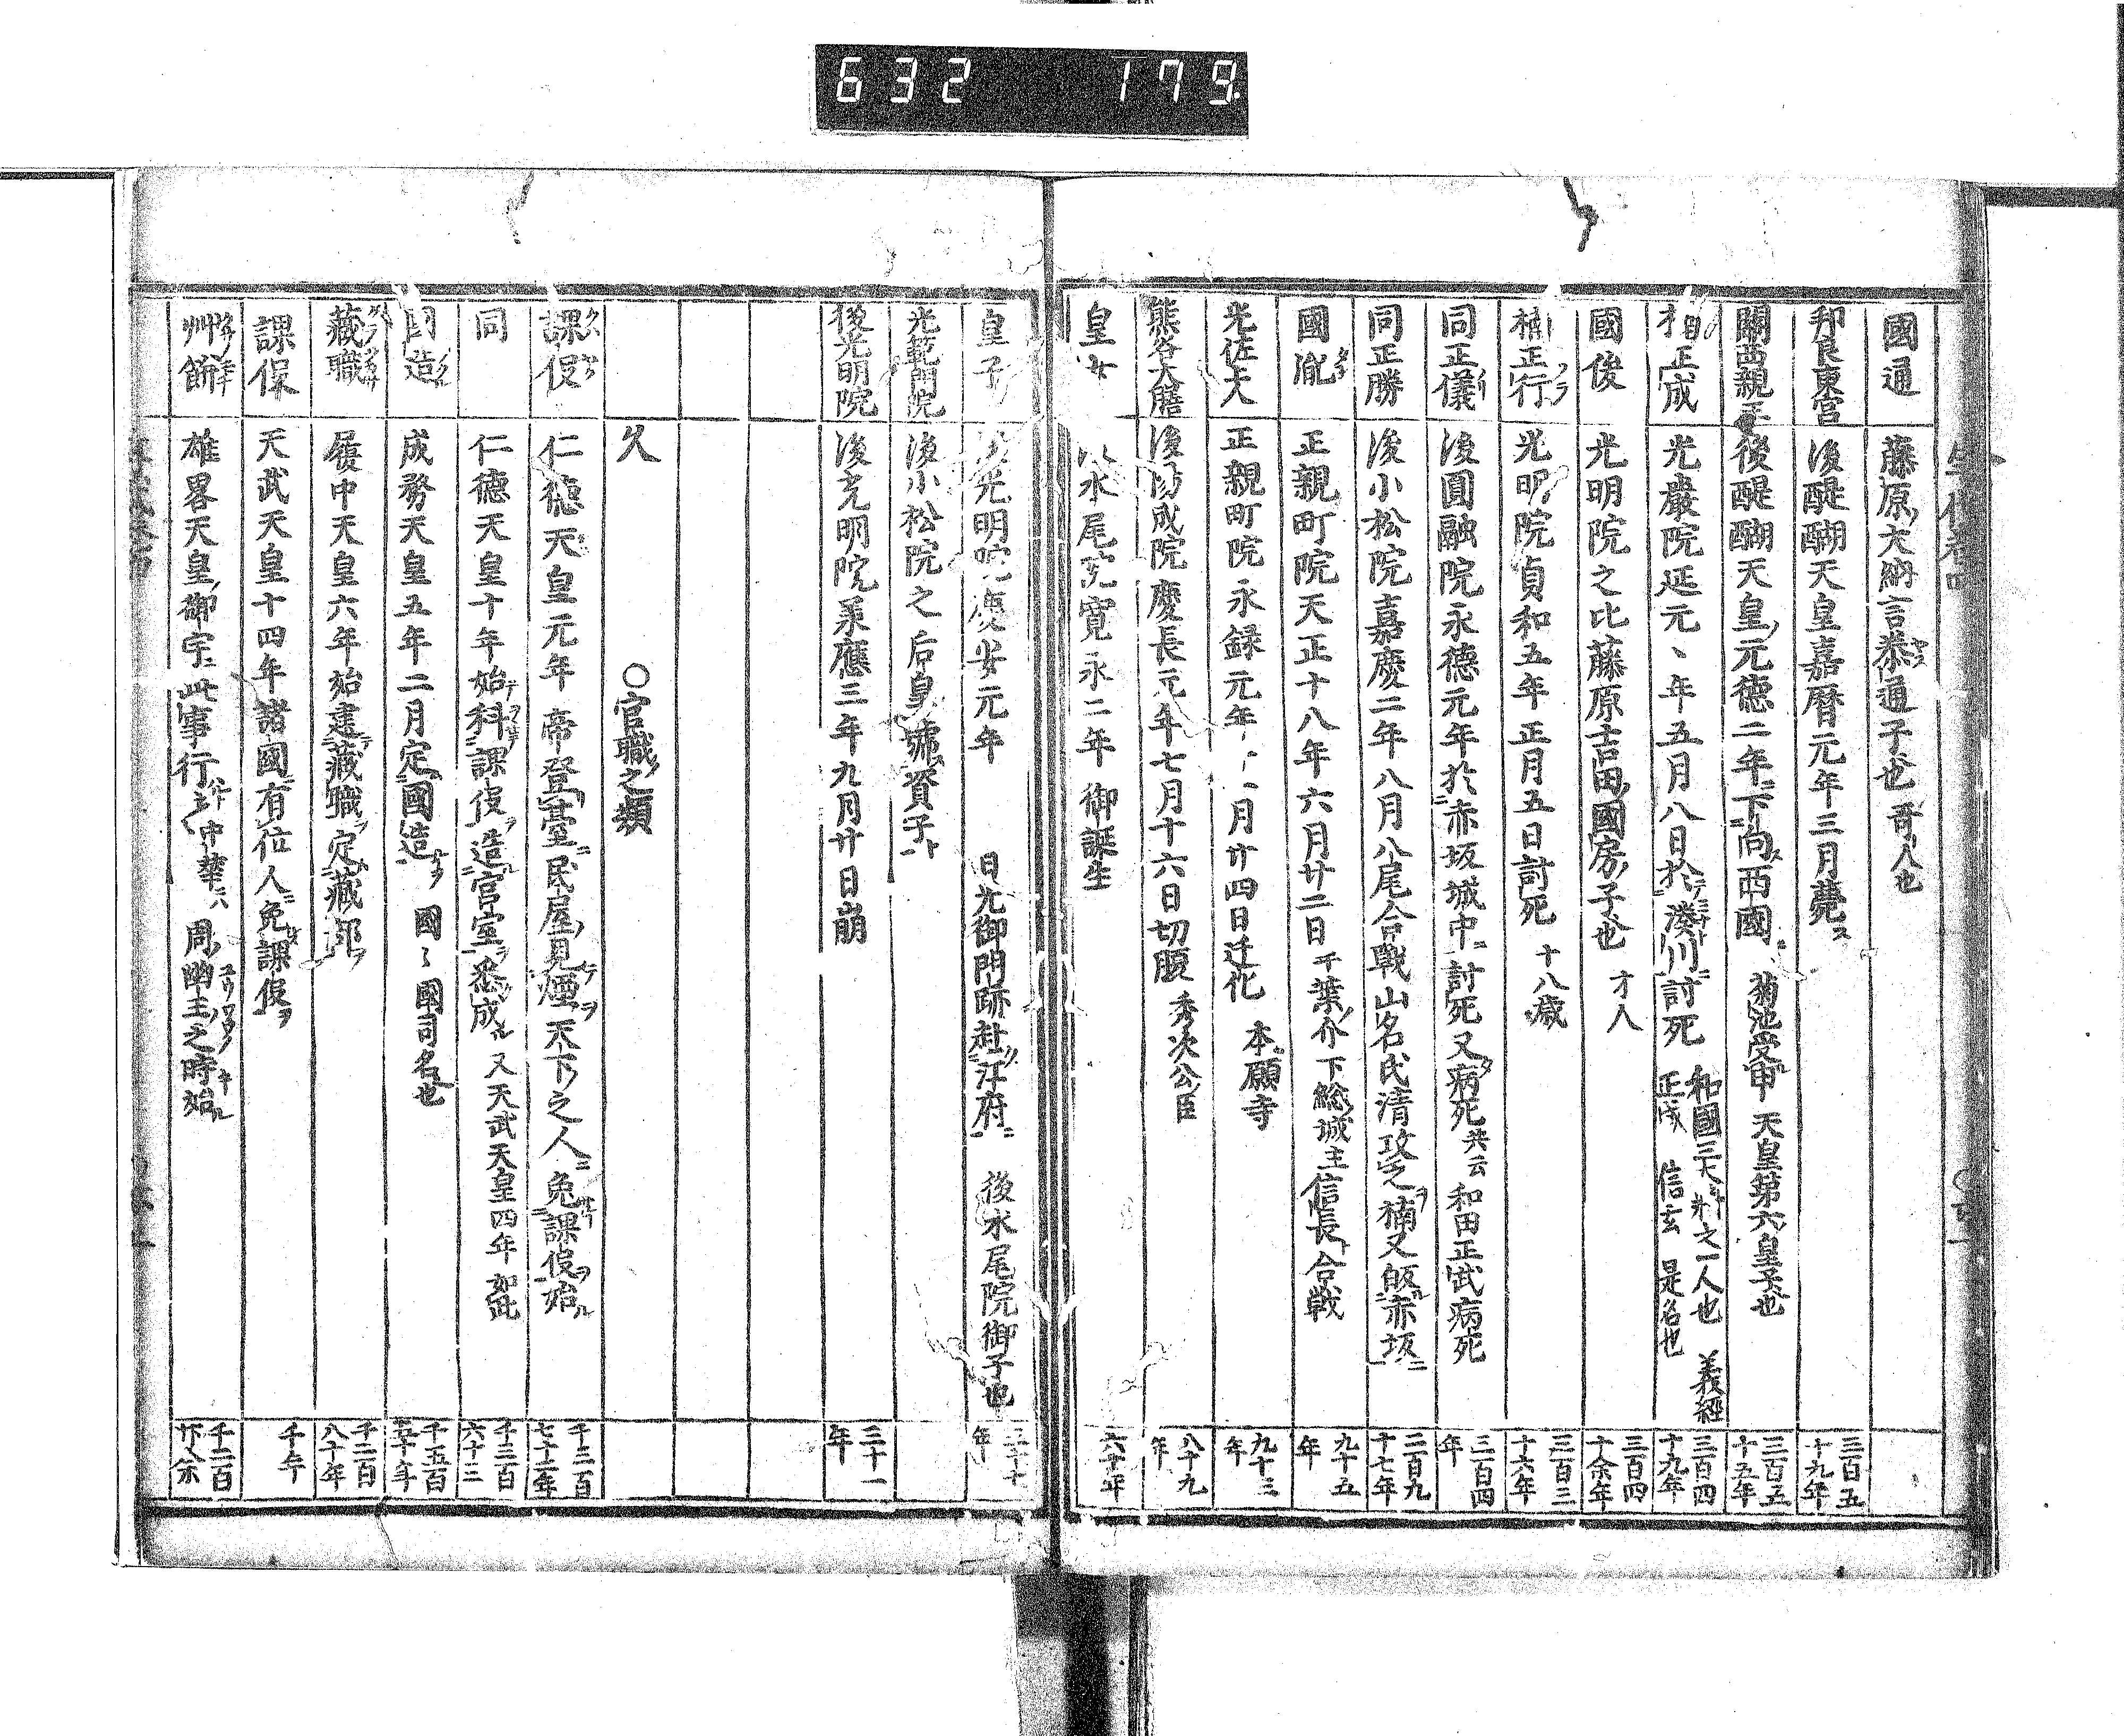 632 179
國通 藤原大納言泰通子也 哥人也
邦良東宮 後醍醐天皇嘉暦元年三月薨ス 三百五十九年
關西親王 後醍醐天皇元徳二年下向西國 菊池受申 天皇第六皇子也 三百五十五年
正成 光嚴院延元々年五月八日於湊川討死 和國三大 之一人也 義經 正成 信玄 是名也 三百四十九年
國俊 光明院之比藤原吉田國房子也 才人 三百四十余年
楠正行 光明院貞和五年正月五日討死 十八歳 三百三十六年
同正儀 後圓融院永徳元年於赤坂城中討死又病死 共云 和田正武病死 三百四年
同正勝 後小松院嘉慶二年八月八尾合戰山名氏清攻之楠又皈赤坂 二百九十七年
國胤 正親町院天正十八年六月廿二日 千葉介下総城主信長ト合戦 九十五年
光佐大 正親町院永録元年 月廿四日迁化 本願寺 九十三年
熊谷大膳 後陽成院慶長元年七月十六日切腹 秀次公臣 八十九年
皇女 水尾院寛永二年 御誕生 六十年
皇子 後光明院慶安元年 日光御門跡赴江府 後水尾院御子也 三十 年
光範門院 後小松院之后皇號資子ト
後光明院 後光明院承應三年九月廿日崩 三十一年
久 ○官職之類
課役 仁徳天皇元年 帝登臺民屋見煙天下之人 免課役始 千三百七十二年
同 仁徳天皇十年始科課役造官室悉成 又天武天皇四年如此 千三百六十三
国造 成務天皇五年二月定國造 國々國司名也 千五百五十年
藏職 履中天皇六年始建藏職定藏部 千二百八十年
課保 天武天皇十四年諸國有位人免課役ヲ 千年
艸餅 雄畧天皇御宇此事行 中華ニハ 周幽王之時始 千二百廿八年